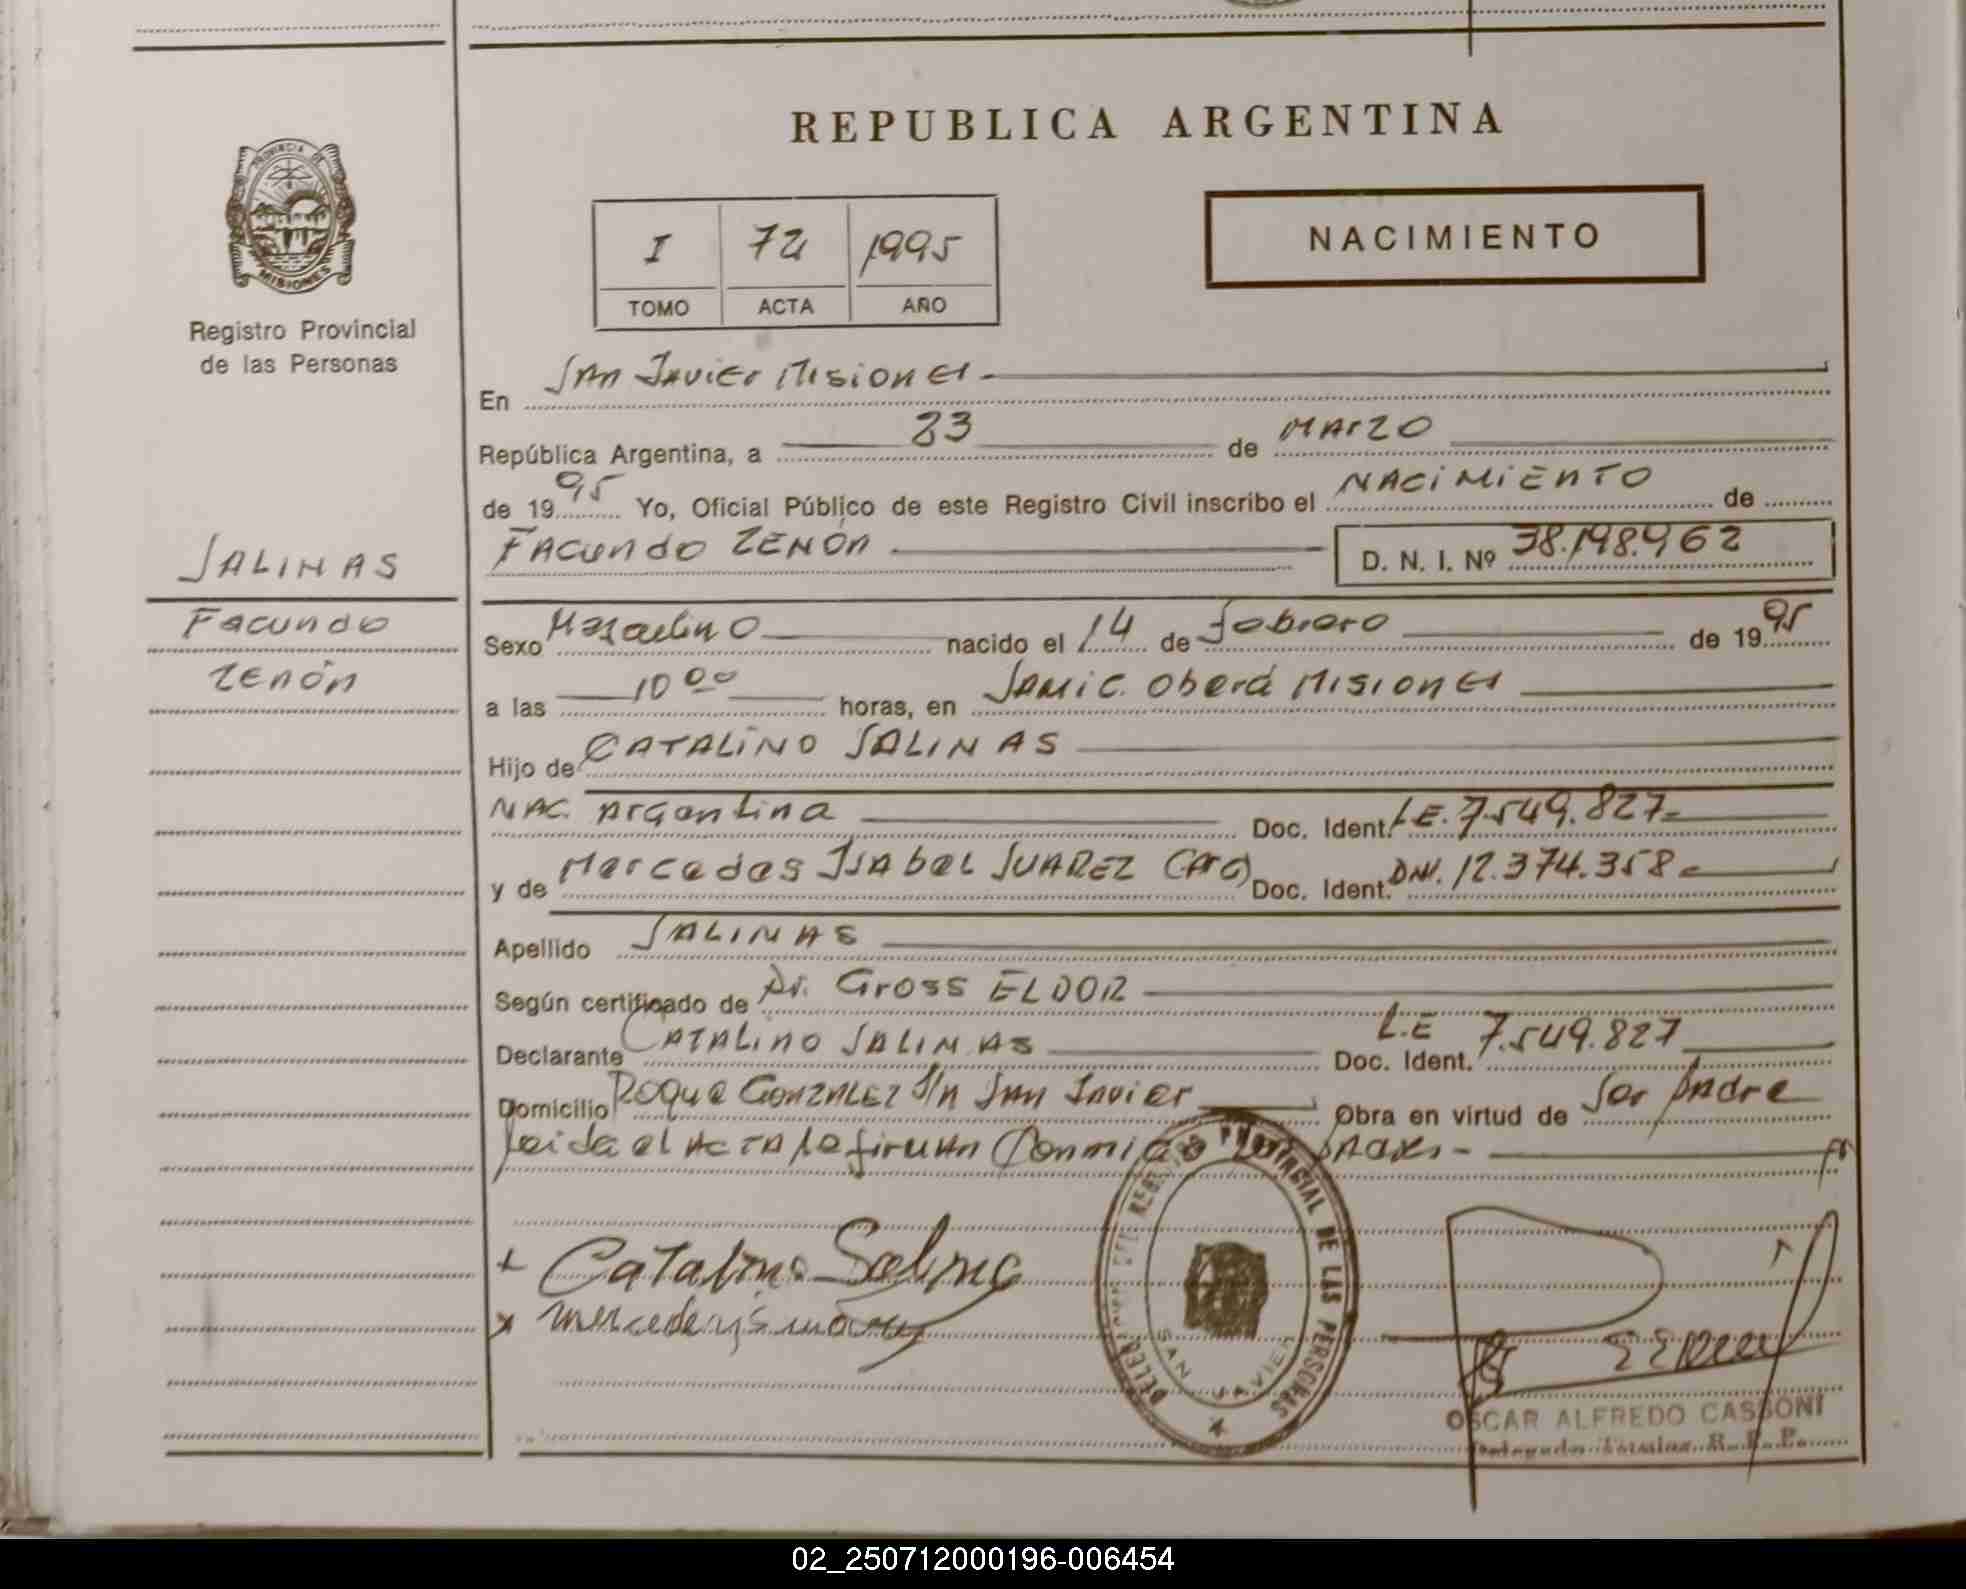 REPUBLICA ARGENTINA
PROVINCIA DE
MISIONES
Registro Provincial
de las Personas
I 72 1995
TOMO ACTA AÑO
NACIMIENTO
En San Javier Misiones
República Argentina, a 23 de Marzo
de 1995 Yo, Oficial Público de este Registro Civil inscribo el NACIMIENTO de
FACUNDO ZENÓN D. N. I. Nº 38.198.962
SALINAS
Facundo
Zenón
Sexo Masculino nacido el 14 de febrero de 1995
a las 10 00 horas, en SAMIC. Oberá Misiones
Hijo de CATALINO SALINAS
NAC. Argentina Doc. Ident. L.E. 7.549.827
y de Mercedes Isabel SUAREZ Doc. Ident. DNI. 12.374.358
Apellido SALINAS
Según certificado de Dr. Gross ELDOR
Declarante CATALINO SALINAS Doc. Ident. L.E 7.549.827
Domicilio Roque GONZALEZ S/n San Javier Obra en virtud de Ser Padre
Leida el ACTA la firman Conmigo
Catalino Salinas
DELEGACION DEL REGISTRO PROVINCIAL DE LAS PERSONAS
SAN JAVIER
OSCAR ALFREDO CASSONI
Delegado Titular R. P. P.
02_250712000196-006454